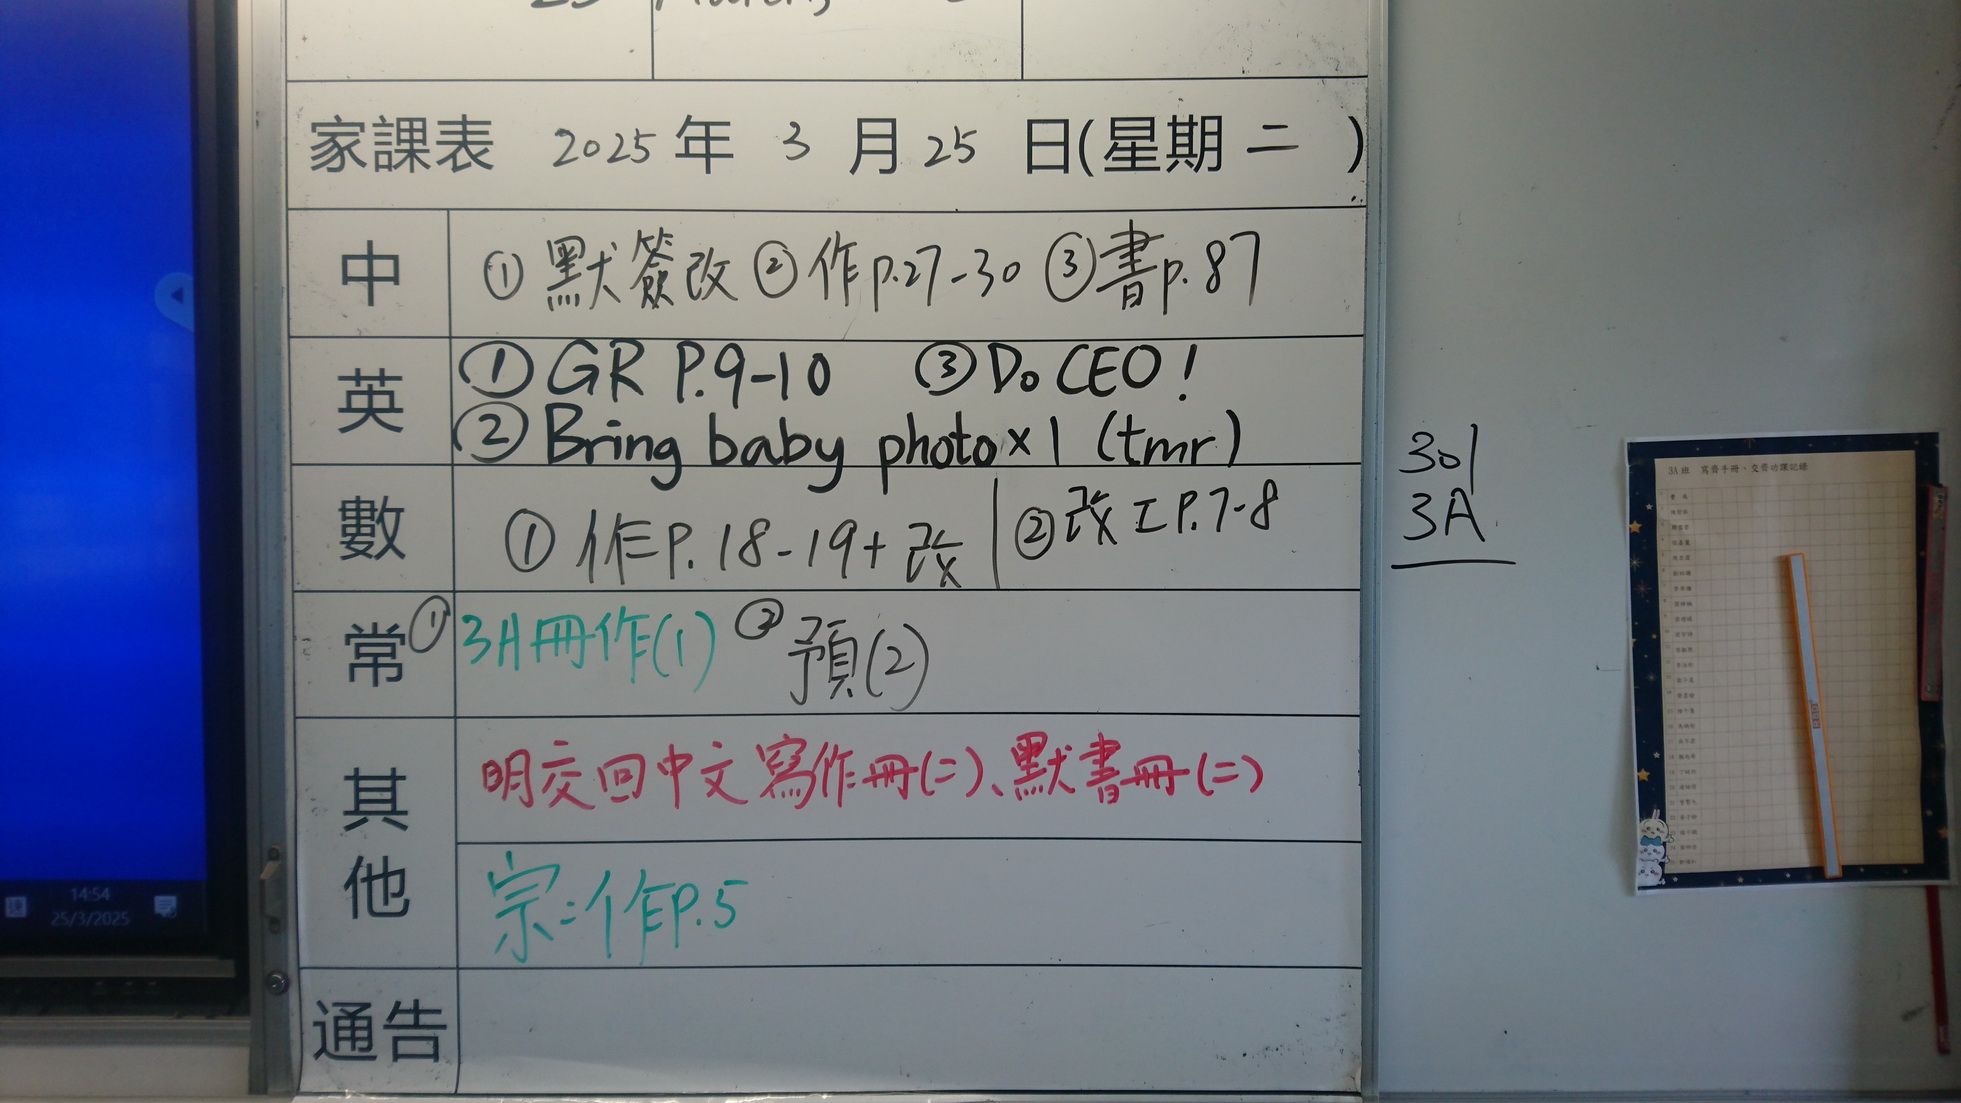 家課表 2025 年 3 月 25 日(星期 二 )
中 ① 默簽改 ② 作p.27-30 ③ 書p.87
英 ① GR P.9-10 ③ Do CEO!
② Bring baby photo x 1 (tmr)
數 ① 作P.18-19+改 ② 改工P.7-8
常 ① 3A冊作(1) ② 預(2)
其他 明交回中文寫作冊(二)、默書冊(二)
宗:作P.5
通告
301
3A
3A班 寫齊手冊、交齊功課記錄
14:54
25/3/2025